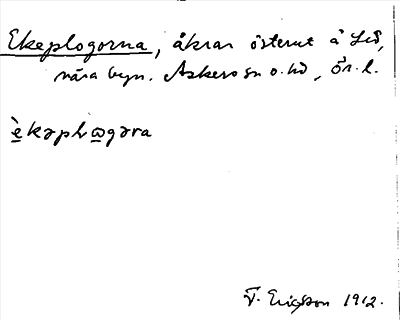 Ekeplogorna, åkrar österut å Lid,
nära byn. Askers sn o. hd, Ör. l.
èkəplωgəra
F. Ericsson 1912.